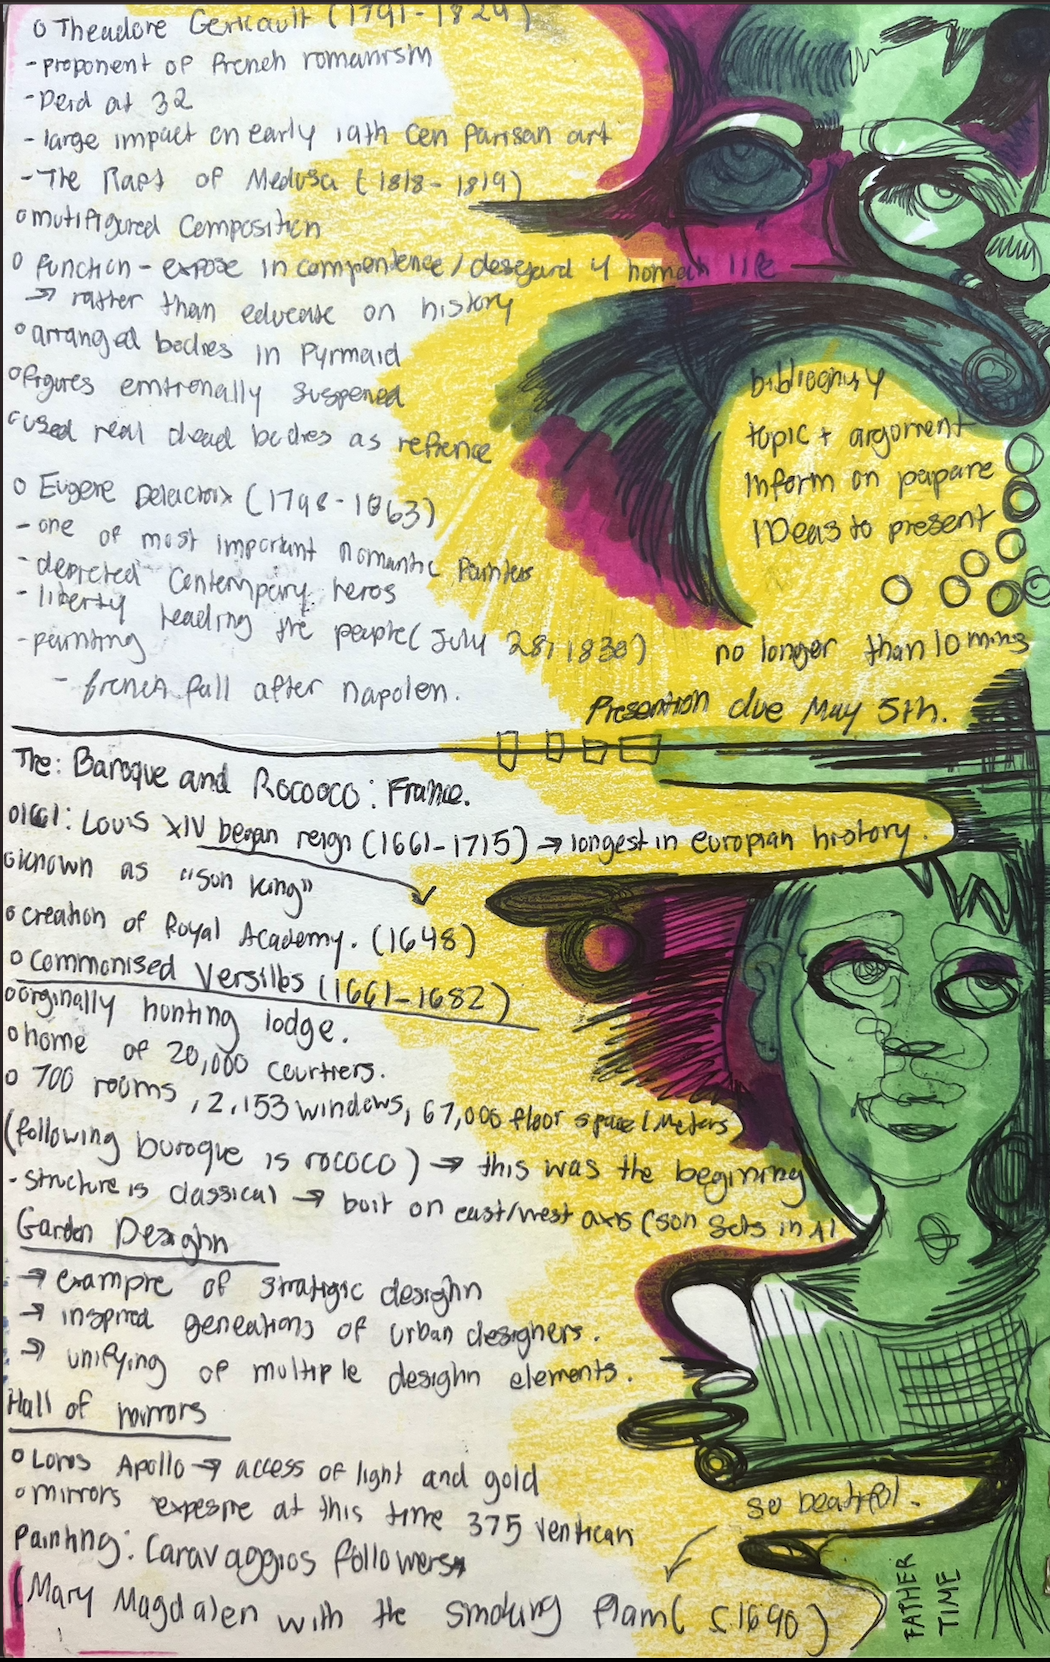 o Theodore Gericault (1791-1824)
- proponent of french romanrsm
- Deid at 32
- large impact on early 19th cen parisan art
- The Raft of Medusa (1818-1819)
o mutifigured composition
o function - expose incompendence / desegard 4 homan life
→ rather than educate on history
o arranged bodies in Pyrmaid
o figures emtronally suspened
o used real dead bodies as refrence
o Eugene Delacroix (1798-1863)
- one of most important romantic painters
- depicted contempary heros
- liberty leading the people (July 28, 1830)
- painting
- french fall after napolen.
bibliogrify
topic + argoment
inform on papare
IDeas to present
no longer than 10 mins
Presention due May 5th.
The: Baroque and Rococo: France.
o 1661: Louis XIV began reign (1661-1715) → longest in european history.
o known as "son king"
o creation of Royal Academy. (1648)
o commonised Versilles (1661-1682)
o orginally hunting lodge.
o home of 20,000 courtiers.
o 700 rooms, 2,153 windows, 67,000 floor space / Meters
(following baroque is rococo) → this was the begining
- structure is classical → buit on east/west axis (son sets in
Garden Desighn
→ example of stratigic desighn
→ inspired geneations of urban desighers.
→ unifying of multiple desighn elements.
Hall of mirrors
o Lovis Apollo → access of light and gold
o mirrors expesire at this time 375 ventican
Painting: Caravaggios followers
(Mary Magdalen with the smoking flam( c.1640)
so beatiful.
FATHER
TIME